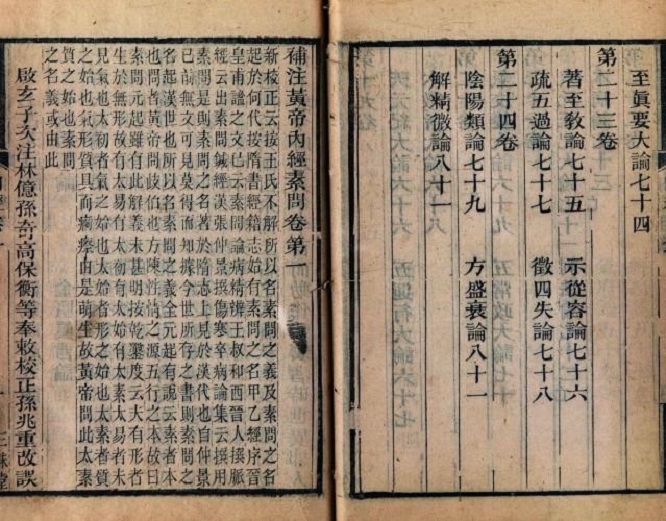 至眞要大論七十四
第二十三卷
著至敎論七十五 示從容論七十六
疏五過論七十七 徵四失論七十八
第二十四卷
陰陽類論七十九 方盛衰論八十一
解精微論八十一
補注黃帝內經素問卷第一
新校正云按王氏不解所以名素問之義及素問之名
起於何代按隋書經籍志始有素問之名甲乙經序晉
皇甫謐之文已云素問論病精辨王叔和西晉人撰脈
經云出素問鍼經漢張仲景撰傷寒卒病論集云撰用
素問是則素問之名著於隋志上見於漢代也自仲景
已前無文可見莫得而知據今世所存之書則素問之
名起漢世也所以名素問之義全元起有說云素者本
也問者黃帝問岐伯也方陳性情之源五行之本故曰
素問元起雖有此解義未甚明按乾鑿度云夫有形者
生於無形故有太易有太初有太始有太素太易者未
見氣也太初者氣之始也太始者形之始也太素者質
之始也氣形質具而痾瘵由是萌生故黃帝問此太素
質之始也素問
之名義或由此
啟玄子次注林億孫奇高保衡等奉敕校正孫兆重改誤